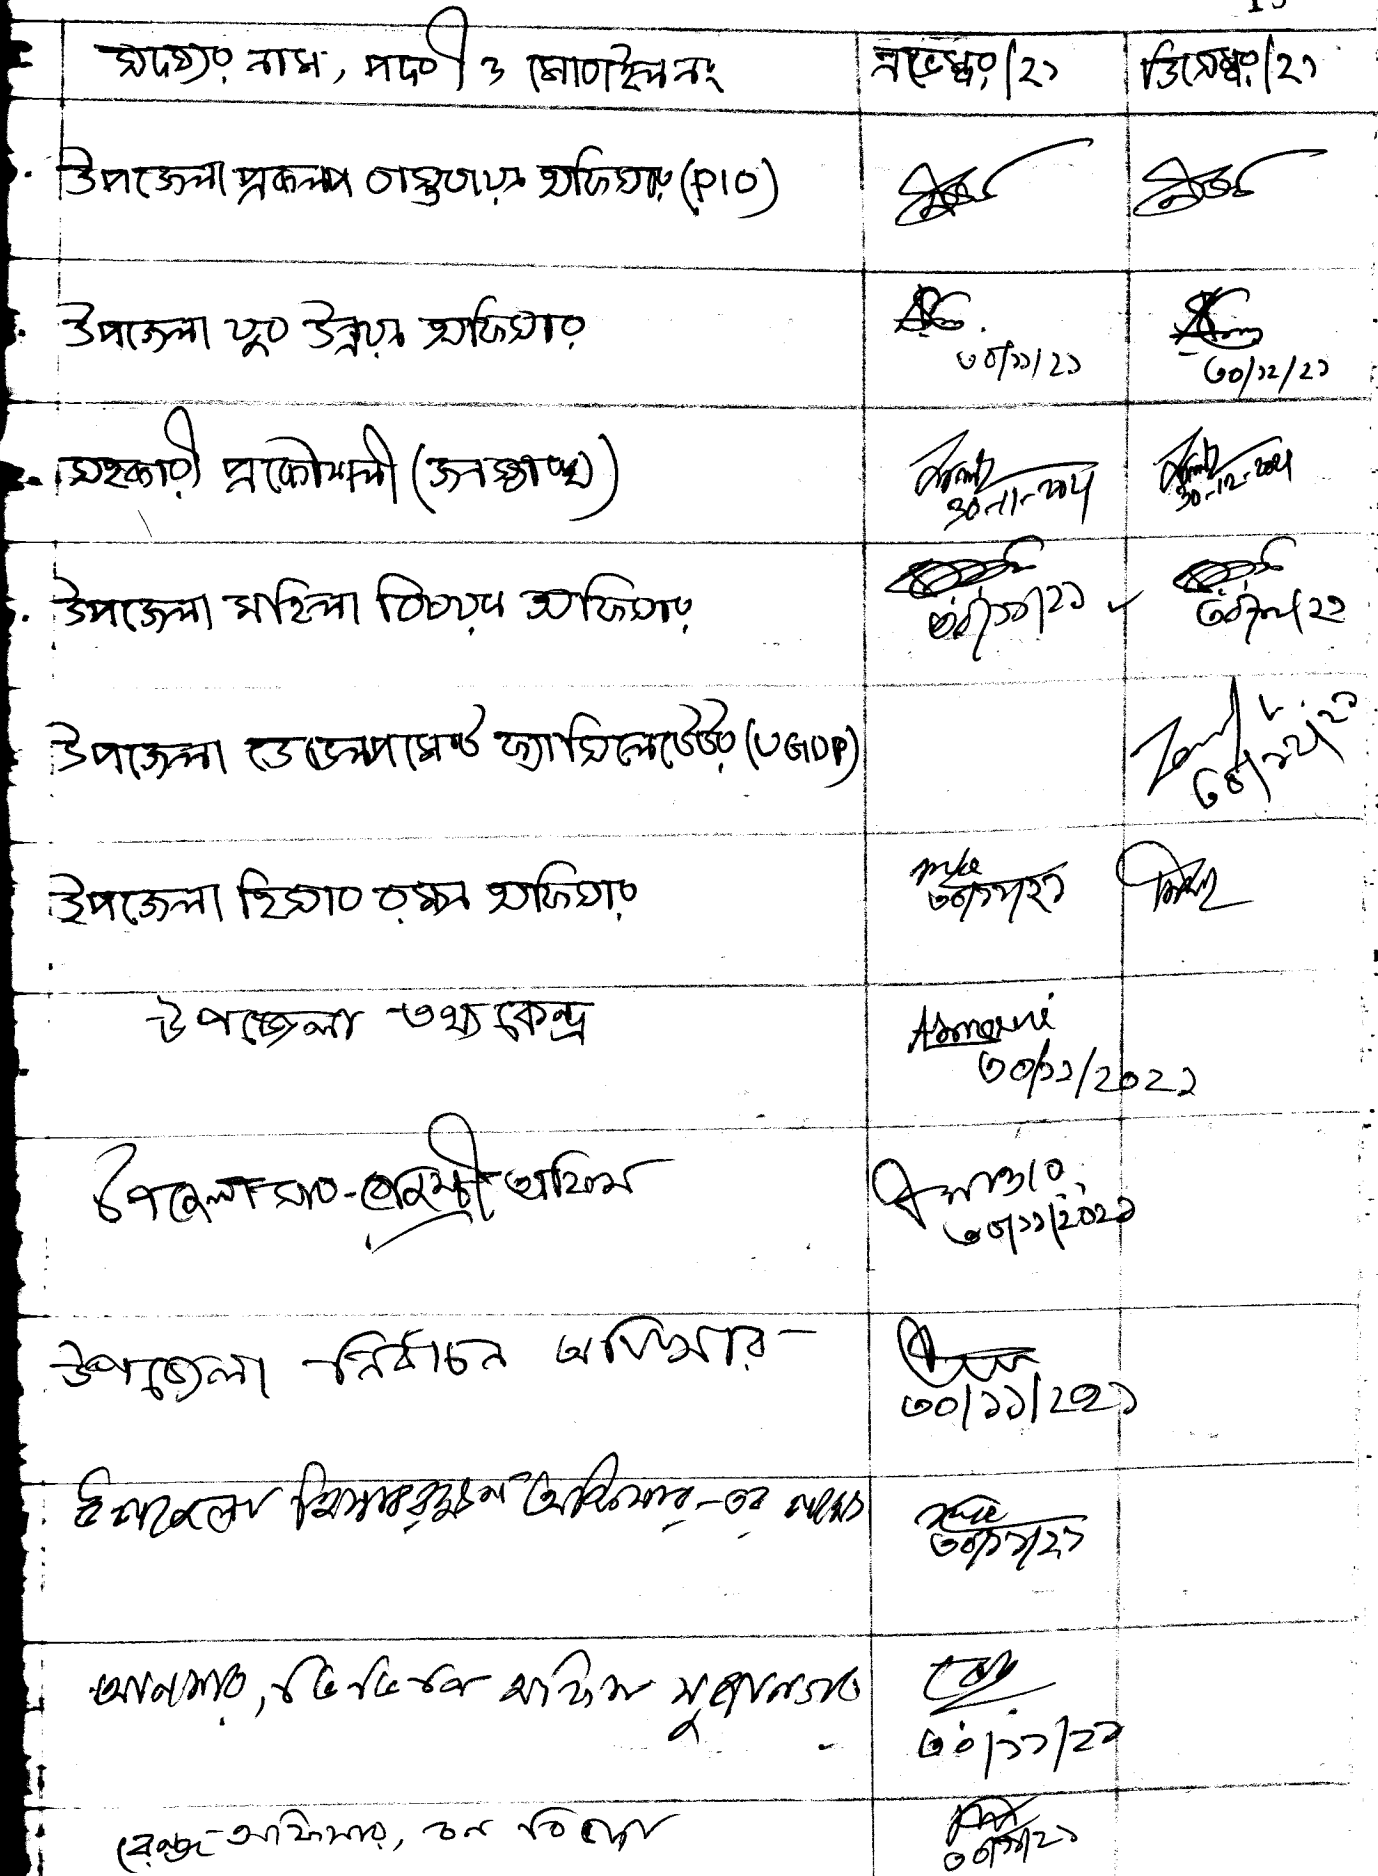 সদস্যের নাম, পদবী ও মোবাইল নং নভেম্বর/২১ ডিসেম্বর/২১
উপজেলা প্রকল্প বাস্তবায়ন অফিসার (PIO)
উপজেলা যুব উন্নয়ন অফিসার
৩০/১১/২১ ৩০/১২/২১
সহকারী প্রকৌশলী (জনস্বাস্থ্য)
30-11-2021 30-12-2021
উপজেলা মহিলা বিষয়ক অফিসার
৩০/১১/২১
উপজেলা ডেভেলপমেন্ট ফ্যাসিলেটেটর (UGDP)
উপজেলা হিসাব রক্ষন অফিসার
৩০/১১/২১
উপজেলা তথ্য কেন্দ্র
৩০/১১/২০২১
উপজেলা সাব-রেজিস্ট্রী অফিস
৩০/১১/২০২১
উপজেলা নির্বাচন অফিসার
৩০/১১/২০২১
উপজেলা হিসাবরক্ষন অফিসার-এর পক্ষে
৩০/১১/২১
আনসার, ভিডিপি অফিস
৩০/১১/২১
রেঞ্জ অফিসার, বন বিভাগ
৩০/১১/২১